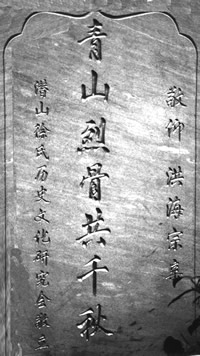 敬仰 洪海宗卓
青山烈骨共千秋
潜山徐氏历史文化研究会敬立